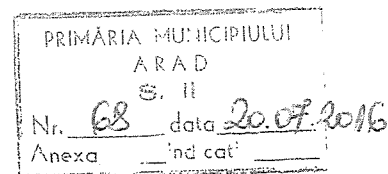 PRIMĂRIA MUNICIPIULUI
ARAD
S. II
Nr. 68 data 20.07.2016
Anexa ind cat